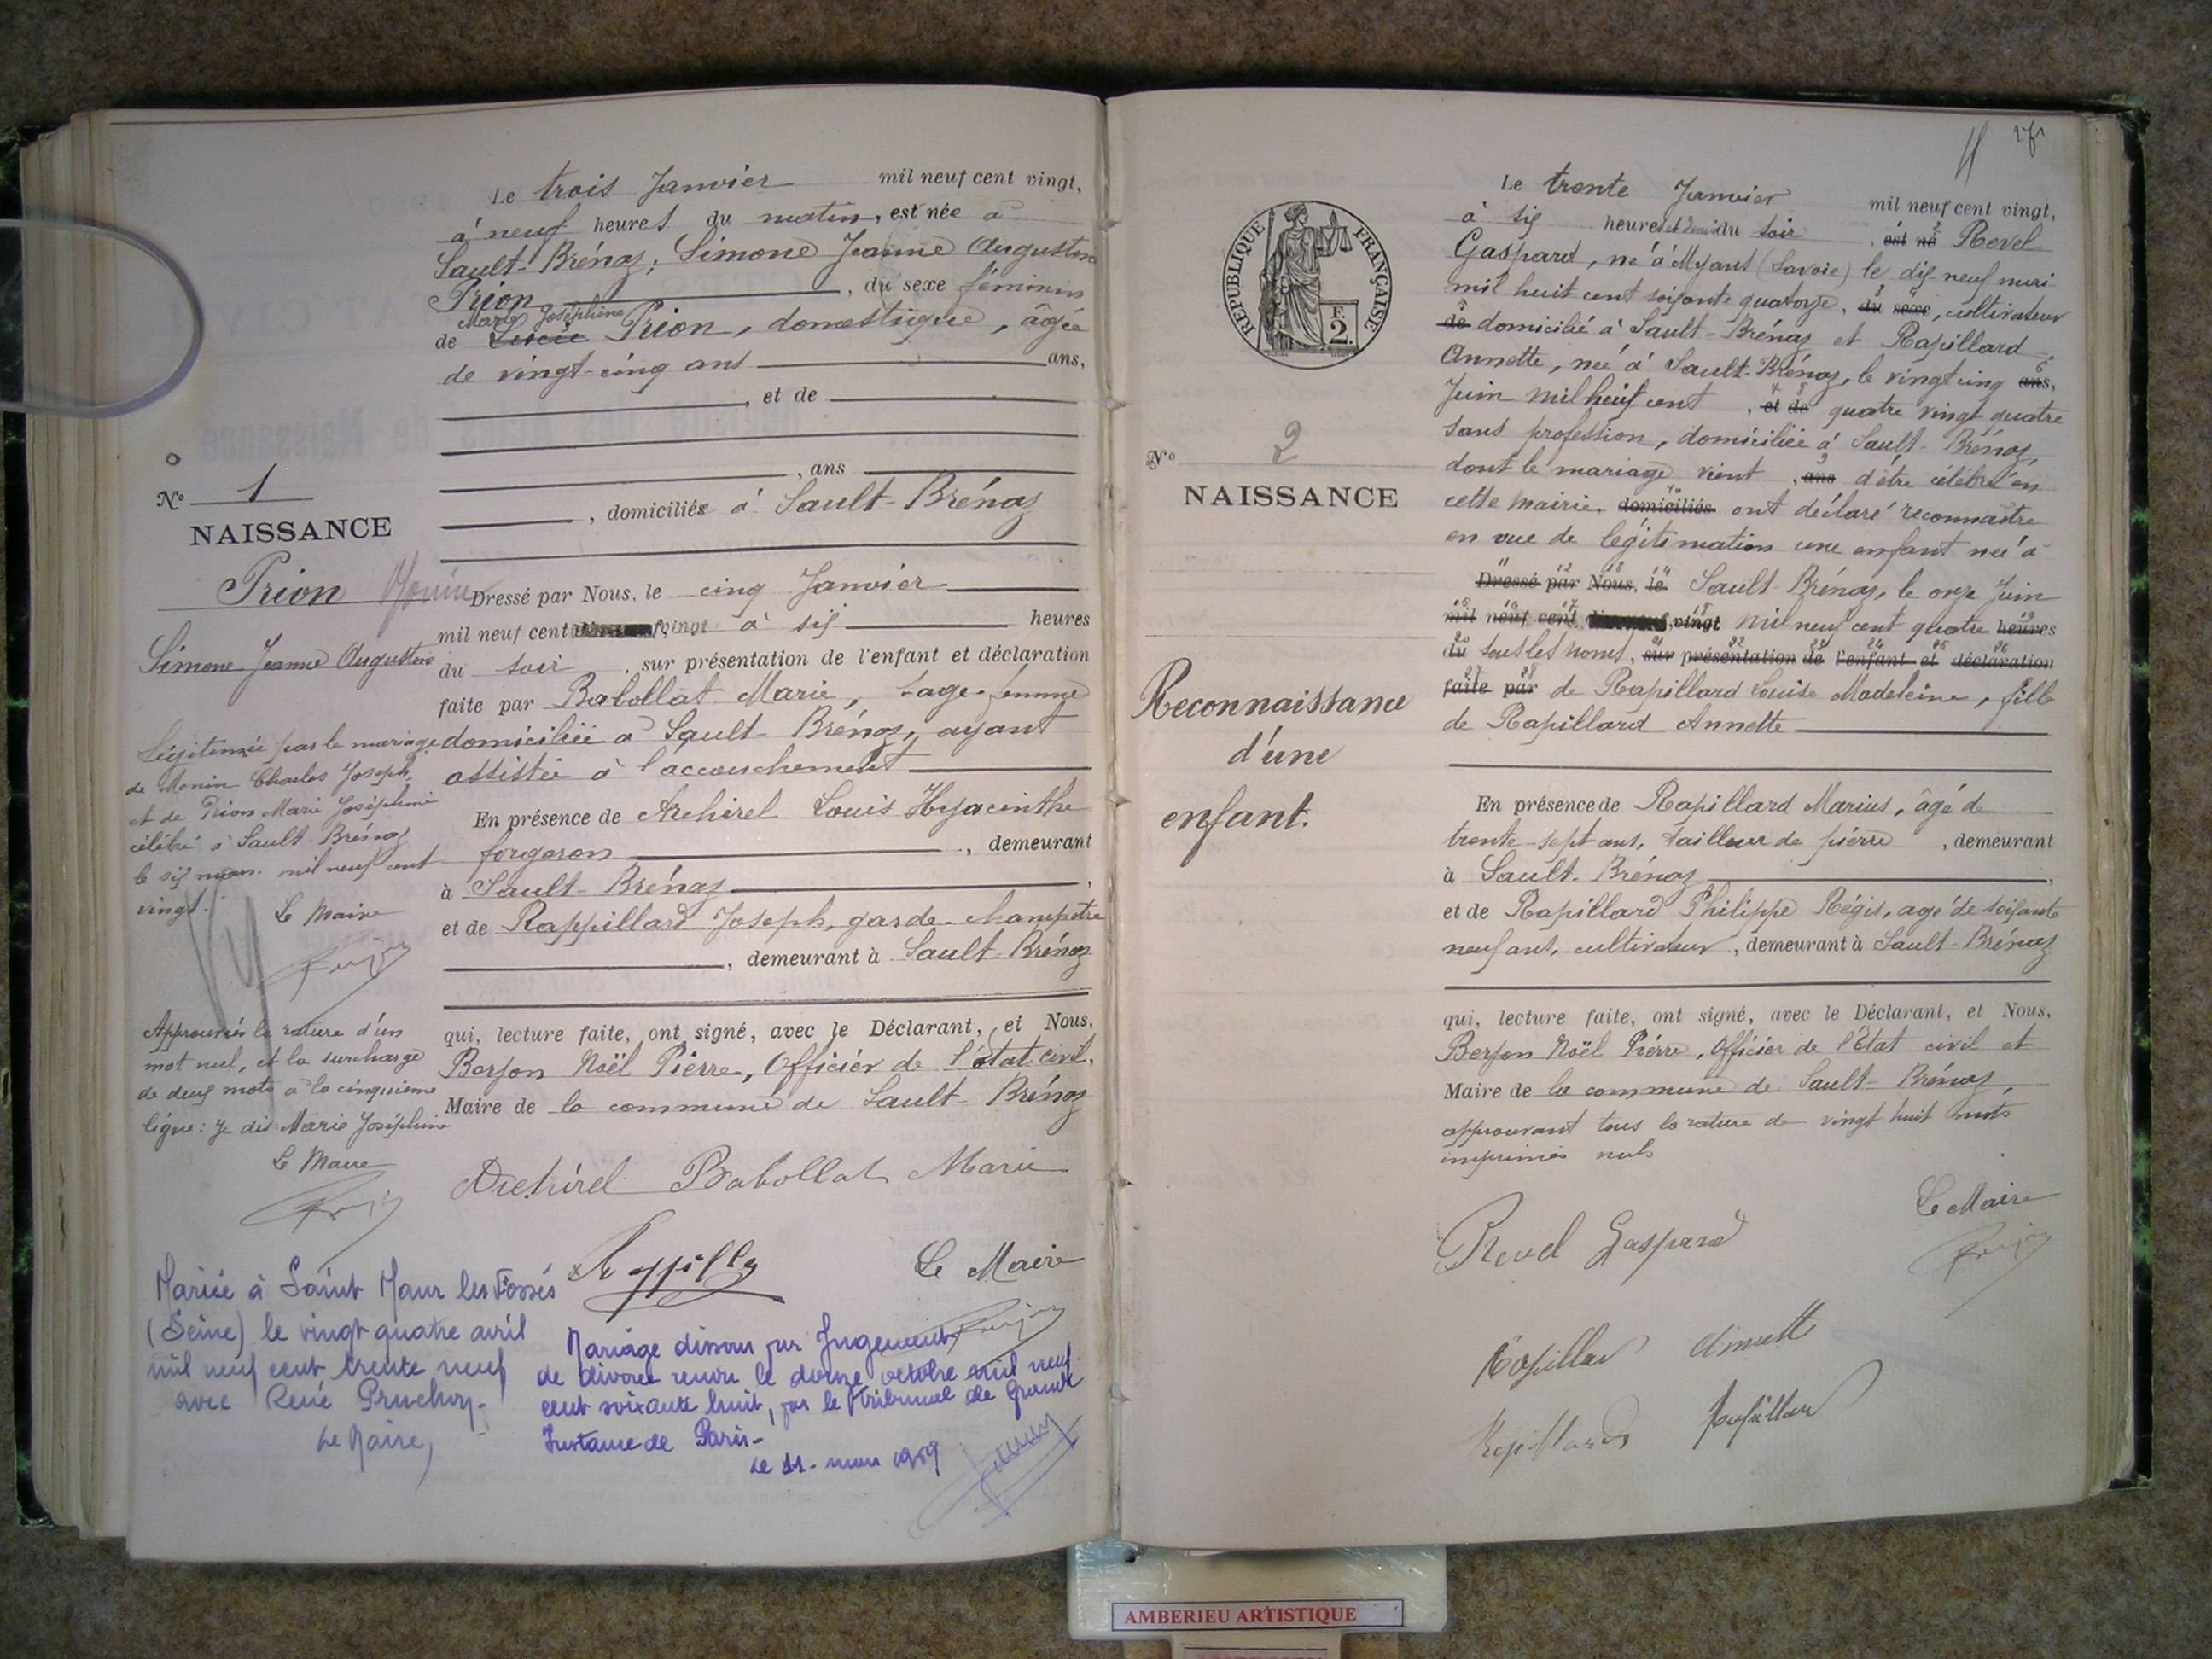 Le trois Janvier mil neuf cent vingt,
à neuf heures du matin, est née à
Sault-Brénaz, Simone Jeanne Augustine
Prion, du sexe féminin
Marie Joséphine
de Prion, domestique, âgée
de vingt-cinq ans ans,
, et de
, ans
, domiciliée à Sault-Brénaz
Dressé par Nous, le cinq Janvier
mil neuf cent vingt à six heures
du soir, sur présentation de l'enfant et déclaration
faite par Babollat Marie, sage-femme
domiciliée à Sault-Brénaz, ayant
assistée à l'accouchement
En présence de Archirel Louis Hyacinthe
forgeron, demeurant
à Sault-Brénaz,
et de Rappillard Joseph, garde-champêtre
, demeurant à Sault-Brénaz
qui, lecture faite, ont signé, avec le Déclarant, et Nous,
Berson Noël Pierre, Officier de l'état civil,
Maire de la commune de Sault-Brénaz
Archirel Babollat Marie
Le Maire
Mariage dissous par Jugement
de divorce rendu le douze octobre mil neuf
cent soixante huit, par le Tribunal de Grande
Instance de Paris-
Le 11 - mars 1969
No 1
NAISSANCE
Prion Monin
Simone Jeanne Augustine
Légitimée par le mariage
de Monin Charles Joseph,
et de Prion Marie Joséphine
célébré à Sault-Brénaz
le six mars mil neuf cent
vingt.
Le Maire
Approuvées la rature d'un
mot nul, et la surcharge
de deux mots à la cinquième
ligne: je dis: Marie Joséphine
Le Maire
Mariée à Saint Maur les Fossés
(Seine) le vingt quatre avril
mil neuf cent trente neuf
avec René
Le Maire,
RÉPUBLIQUE FRANÇAISE
F.
2.
No 2
NAISSANCE
Reconnaissance
d'une
enfant.
Le trente Janvier mil neuf cent vingt,
à six heures et demi du soir, est né Revel
Gaspard, né à Myans (Savoie) le dix neuf mai
mil huit cent soixante quatorze, du sexe, cultivateur
de domicilié à Sault-Brénaz et Rapillard
Annette, née à Sault-Brénaz, le vingt cinq ans,
Juin mil huit cent, et de quatre vingt quatre
sans profession, domiciliée à Sault-Brénaz,
dont le mariage vient, ans d'être célébré en
cette mairie, domiciliés ont déclaré reconnaître
en vue de légitimation une enfant née à
Dressé par Nous, le Sault-Brénaz, le onze Juin
mil neuf cent vingt mil neuf cent quatre heures
du sous les noms, sur présentation de l'enfant et déclaration
faite par de Rapillard Louise Madeleine, fille
de Rapillard Annette
En présence de Rapillard Marius, âgé de
trente-sept ans, tailleur de pierre, demeurant
à Sault-Brénaz,
et de Rapillard Philippe Régis, agé de soixante
neuf ans, cultivateur, demeurant à Sault-Brénaz
qui, lecture faite, ont signé, avec le Déclarant, et Nous,
Berson Noël Pierre, Officier de l'État civil et
Maire de la commune de Sault-Brénaz,
approuvant tous la rature de vingt huit mots
imprimés nuls
Le Maire
Revel Gaspard
AMBERIEU ARTISTIQUE